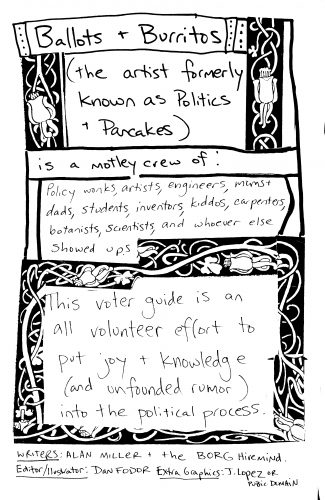 Ballots + Burritos
(the artist formerly
known as Politics
+ Pancakes)
is a motley crew of:
Policy wonks, artists, engineers, mums+
dads, students, inventors, kiddos, carpenters,
botanists, scientists, and whoever else
showed ups
This voter guide is an
all volunteer effort to
put joy + knowledge
(and unfounded rumor)
into the political process.
Writers: ALAN MILLER + the BORG Hiremind.
Editor/Illustrator: DAN FODOR Extra Graphics: J. Lopez or
Public Domain